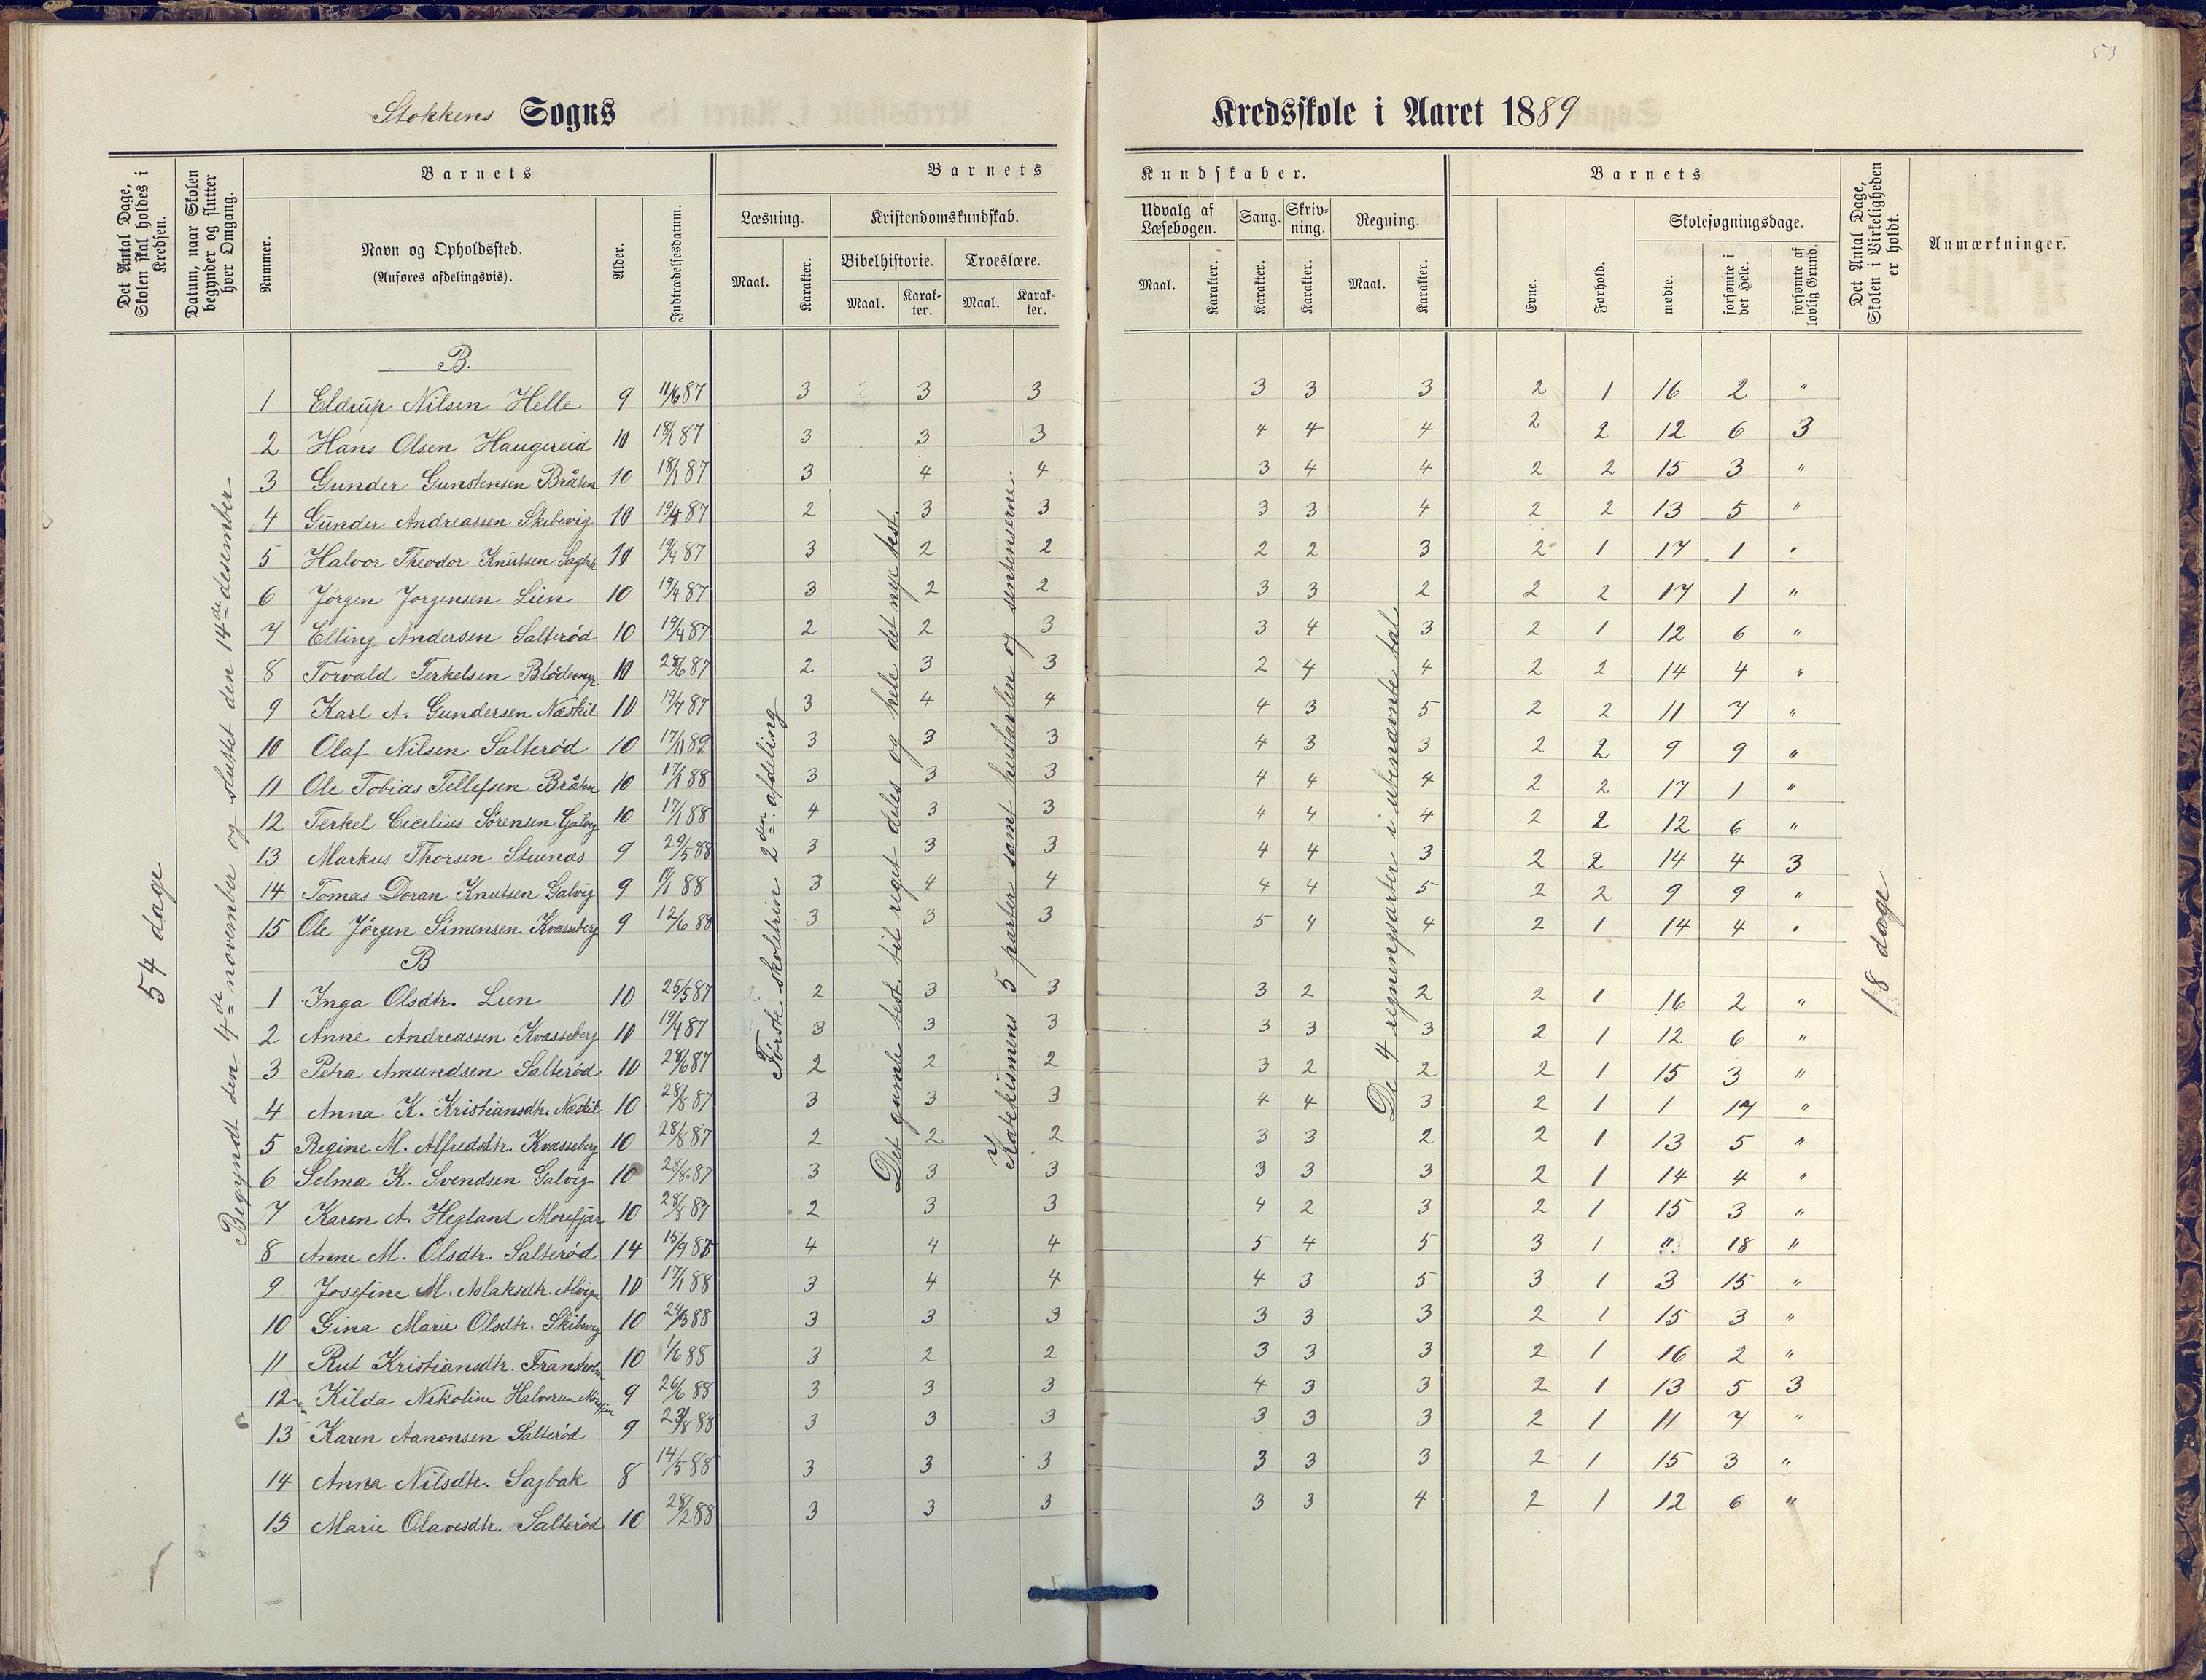 53
Stokkens Sogns Kredsskole i Aaret 1889
Det Antal Dage, Skolen skal holdes i Kredsen.
Datum, naar Skolen begynder og slutter hver Omgang.
Barnets
Nummer.
Navn og Opholdssted.
(Anføres afdelingsvis).
Alder.
Indtrædelsesdatum.
Barnets Kundskaber.
Læsning.
Maal. Karakter.
Kristendomskundskab.
Bibelhistorie. Troeslære.
Maal. Karakter. Maal. Karakter.
Udvalg af Læsebogen.
Maal. Karakter.
Sang.
Karakter.
Skrivning.
Karakter.
Regning.
Maal. Karakter.
Barnets
Evne. Forhold.
Skolesøgningsdage.
mødte. forsømte i det Hele. forsømte af lovlig Grund.
Det Antal Dage, Skolen i Virkeligheden er holdt.
Anmærkninger.
54 dage
Begyndt den 4de november og sluttet den 14de desember
Første skoletrin 2den afdeling
Det gamle test. til riget deles og hele det nye test.
Katekismens 5 parter samt hustavlen og sentenserne.
De 4 regningsarter i ubenævnte tal
18 dage
B.
1 Eldrup Nilsen Helle 9 11/6 87 3 3 3 3 3 3 2 1 16 2 "
2 Hans Olsen Haugereid 10 18/1 87 3 3 3 4 4 4 2 2 12 6 3
3 Gunder Gunstensen Bråten 10 18/1 87 3 4 4 3 4 4 2 2 15 3 "
4 Gunder Andreassen Skibevig 10 19/4 87 2 3 3 3 3 4 2 2 13 5 "
5 Halvor Theodor Knutsen Sagbak 10 19/4 87 3 2 2 2 2 3 2 1 17 1 "
6 Jörgen Jorgensen Lien 10 19/4 87 3 2 2 3 3 2 2 2 17 1 "
7 Elling Andersen Salterød 10 19/4 87 2 2 3 3 4 3 2 1 12 6 "
8 Torvald Terkelsen Blödemyr 10 28/6 87 2 3 3 2 4 4 2 2 14 4 "
9 Karl A. Gundersen Næskil 10 19/7 87 3 4 4 4 3 5 2 2 11 7 "
10 Olaf Nilsen Salterød 10 17/1 89 3 3 3 4 3 3 2 2 9 9 "
11 Ole Tobias Tellefsen Bråten 10 17/1 88 3 3 3 4 4 4 2 2 17 1 "
12 Terkel Cicilius Sörensen Galvig 10 17/1 88 4 3 3 4 4 4 2 2 12 6 "
13 Markus Thorsen Stuenæs 9 29/5 88 3 3 3 4 4 3 2 2 14 4 3
14 Tomas Doran Knutsen Galvig 9 88 3 4 4 4 4 5 2 2 9 9 "
15 Ole Jörgen Simensen Kvasseberg 9 12/6 88 3 3 3 5 4 4 2 1 14 4 "
B
1 Inga Olsdtr. Lien 10 25/5 87 2 3 3 3 2 2 2 1 16 2 "
2 Anne Andreassen Kvasseberg 10 19/4 87 3 3 3 3 3 3 2 1 12 6 "
3 Petra Amundsen Salterød 10 28/6 87 2 2 2 3 2 2 2 1 15 3 "
4 Anna K. Kristiansdtr. Næskil 10 28/8 87 3 3 3 4 4 3 2 1 1 17 "
5 Regine M. Alfredsdtr. Kvasseberg 10 28/8 87 2 2 2 3 3 2 2 1 13 5 "
6 Selma K. Svendsen Galvig 10 28/8 87 3 3 3 3 3 3 2 1 14 4 "
7 Karen A. Hegland Morefjær 10 28/8 87 2 3 3 4 2 3 2 1 15 3 "
8 Anne M. Olsdtr. Salterød 14 15/9 85 4 4 4 5 4 5 3 1 " 18 "
9 Josefine M. Aslaksdtr. 10 17/1 88 3 4 4 4 3 5 3 1 3 15 "
10 Gina Marie Olsdtr. Skibevig 10 24/3 88 3 3 3 3 3 3 2 1 15 3 "
11 Rut Kristiansdtr. Fransholm 10 1/6 88 3 2 2 3 3 3 2 1 16 2 "
12 Kilda Nikoline Halvorsen Morefjær 9 26/6 88 3 3 3 4 3 3 2 1 13 5 3
13 Karen Aanonsen Salterød 9 23/8 88 3 3 3 3 3 3 2 1 11 7 "
14 Anna Nilsdtr. Sagbak 8 14/5 88 3 3 3 3 3 3 2 1 15 3 "
15 Marie Olavesdtr. Salterød 10 28/2 88 3 3 3 3 3 4 2 1 12 6 "